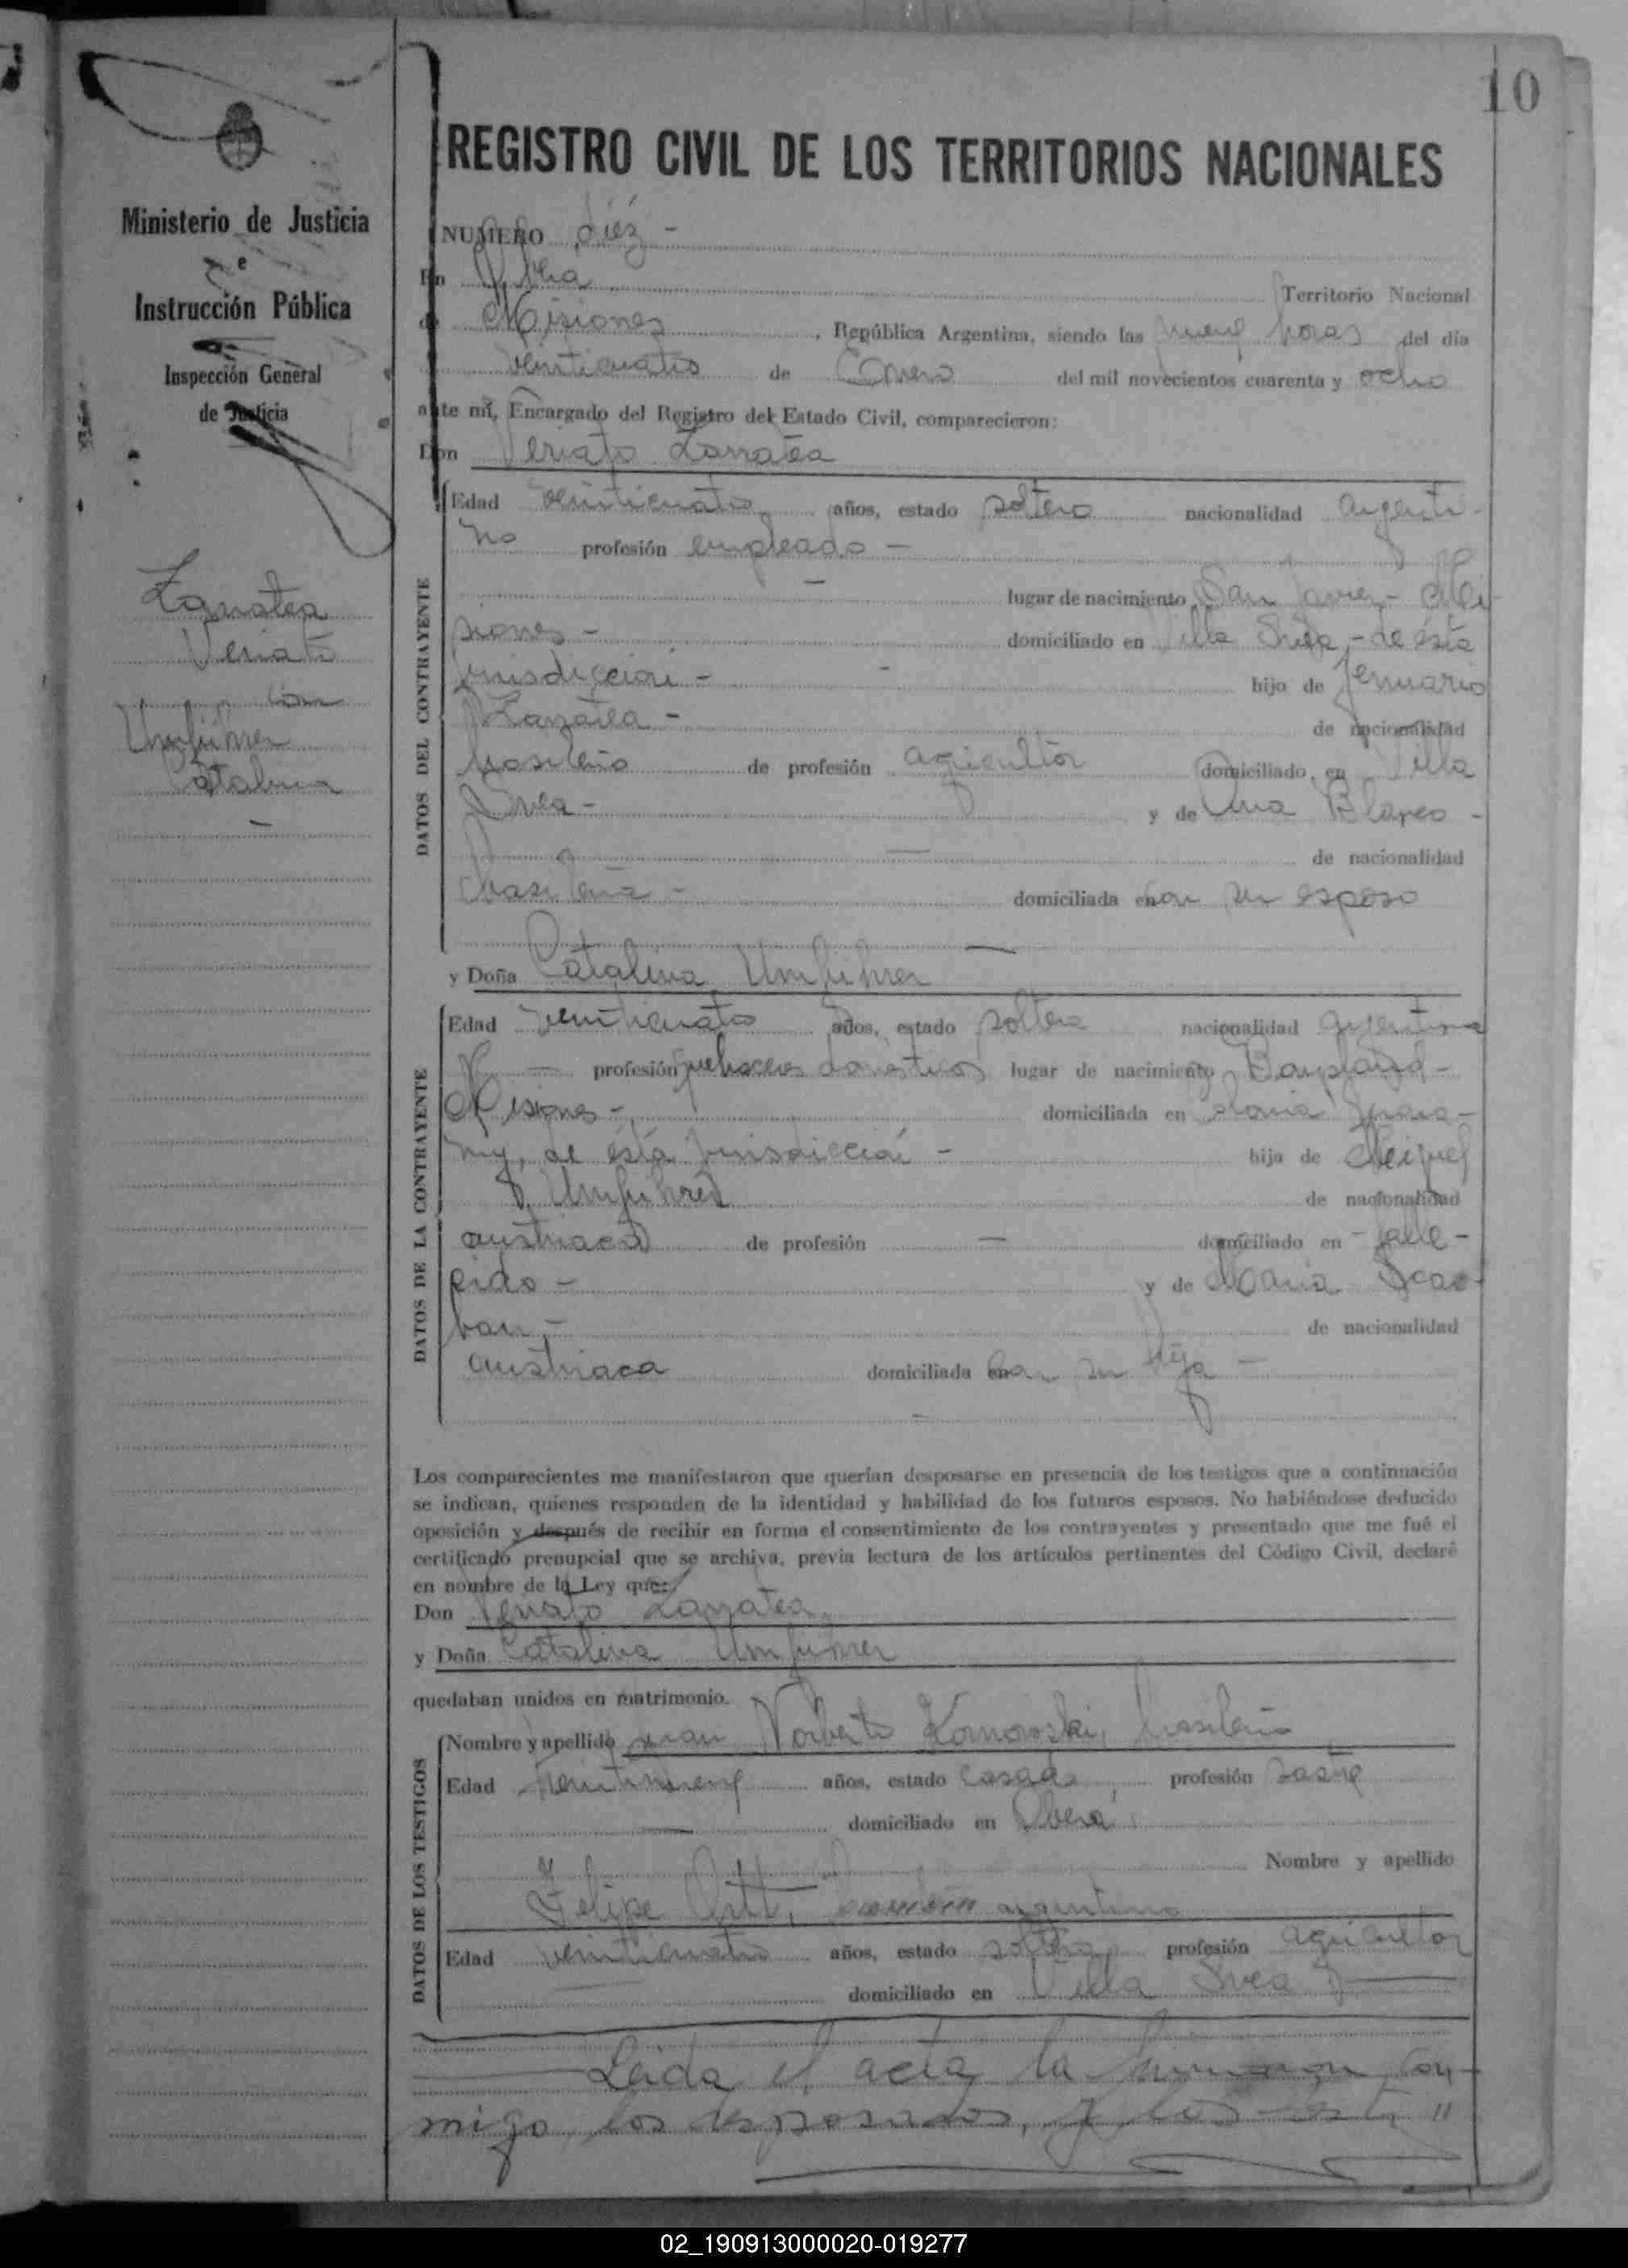 10
Ministerio de Justicia
e
Instrucción Pública
Inspección General
de Justicia
Zarratea
Veriato
con
Umfuhrer
Catalina
REGISTRO CIVIL DE LOS TERRITORIOS NACIONALES
NUMERO diéz -
En Territorio Nacional
de Misiones, República Argentina, siendo las nueve horas del día
veinticuatro de Enero del mil novecientos cuarenta y ocho
ante mí, Encargado del Registro del Estado Civil, comparecieron:
Don Veriato Zarratea
DATOS DEL CONTRAYENTE
Edad veinticuatro años, estado soltero nacionalidad argenti-
no profesión empleado -
lugar de nacimiento San Javier - Mi-
siones - domiciliado en Villa Svea, - de ésta
jurisdicción - hijo de Jenuario
Zarratea - de nacionalidad
brasileño de profesión agricultor domiciliado en Villa
Svea - y de Ana Blanco -
de nacionalidad
brasileña - domiciliada en con su esposo
y Doña Catalina Umfuhrer
DATOS DE LA CONTRAYENTE
Edad veinticuatro años, estado soltera nacionalidad argentina
profesión quehaceres domésticos lugar de nacimiento Bonpland -
Misiones - domiciliada en
de ésta jurisdicción - hija de Miguel
Umfuhrer de nacionalidad
austriaco de profesión - domiciliado en - falle-
cido - y de Maria
de nacionalidad
austriaca domiciliada en con su hija -
Los comparecientes me manifestaron que querían desposarse en presencia de los testigos que a continuación
se indican, quienes responden de la identidad y habilidad de los futuros esposos. No habiéndose deducido
oposición y después de recibir en forma el consentimiento de los contrayentes y presentado que me fué el
certificado prenupcial que se archiva, previa lectura de los artículos pertinentes del Código Civil, declaré
en nombre de la Ley que:
Don Veriato Zarratea
y Doña Catalina Umfuhrer
quedaban unidos en matrimonio.
DATOS DE LOS TESTIGOS
Nombre y apellido Juan Norberto Kornowski, brasileño
Edad veintinueve años, estado casado, profesión sastre
domiciliado en Oberá
Nombre y apellido
Felipe argentino
Edad veinticuatro años, estado soltero profesión agricultor
domiciliado en Villa Svea
Leida el acta la firmaron con-
migo los desposados, y los test "
02_190913000020-019277